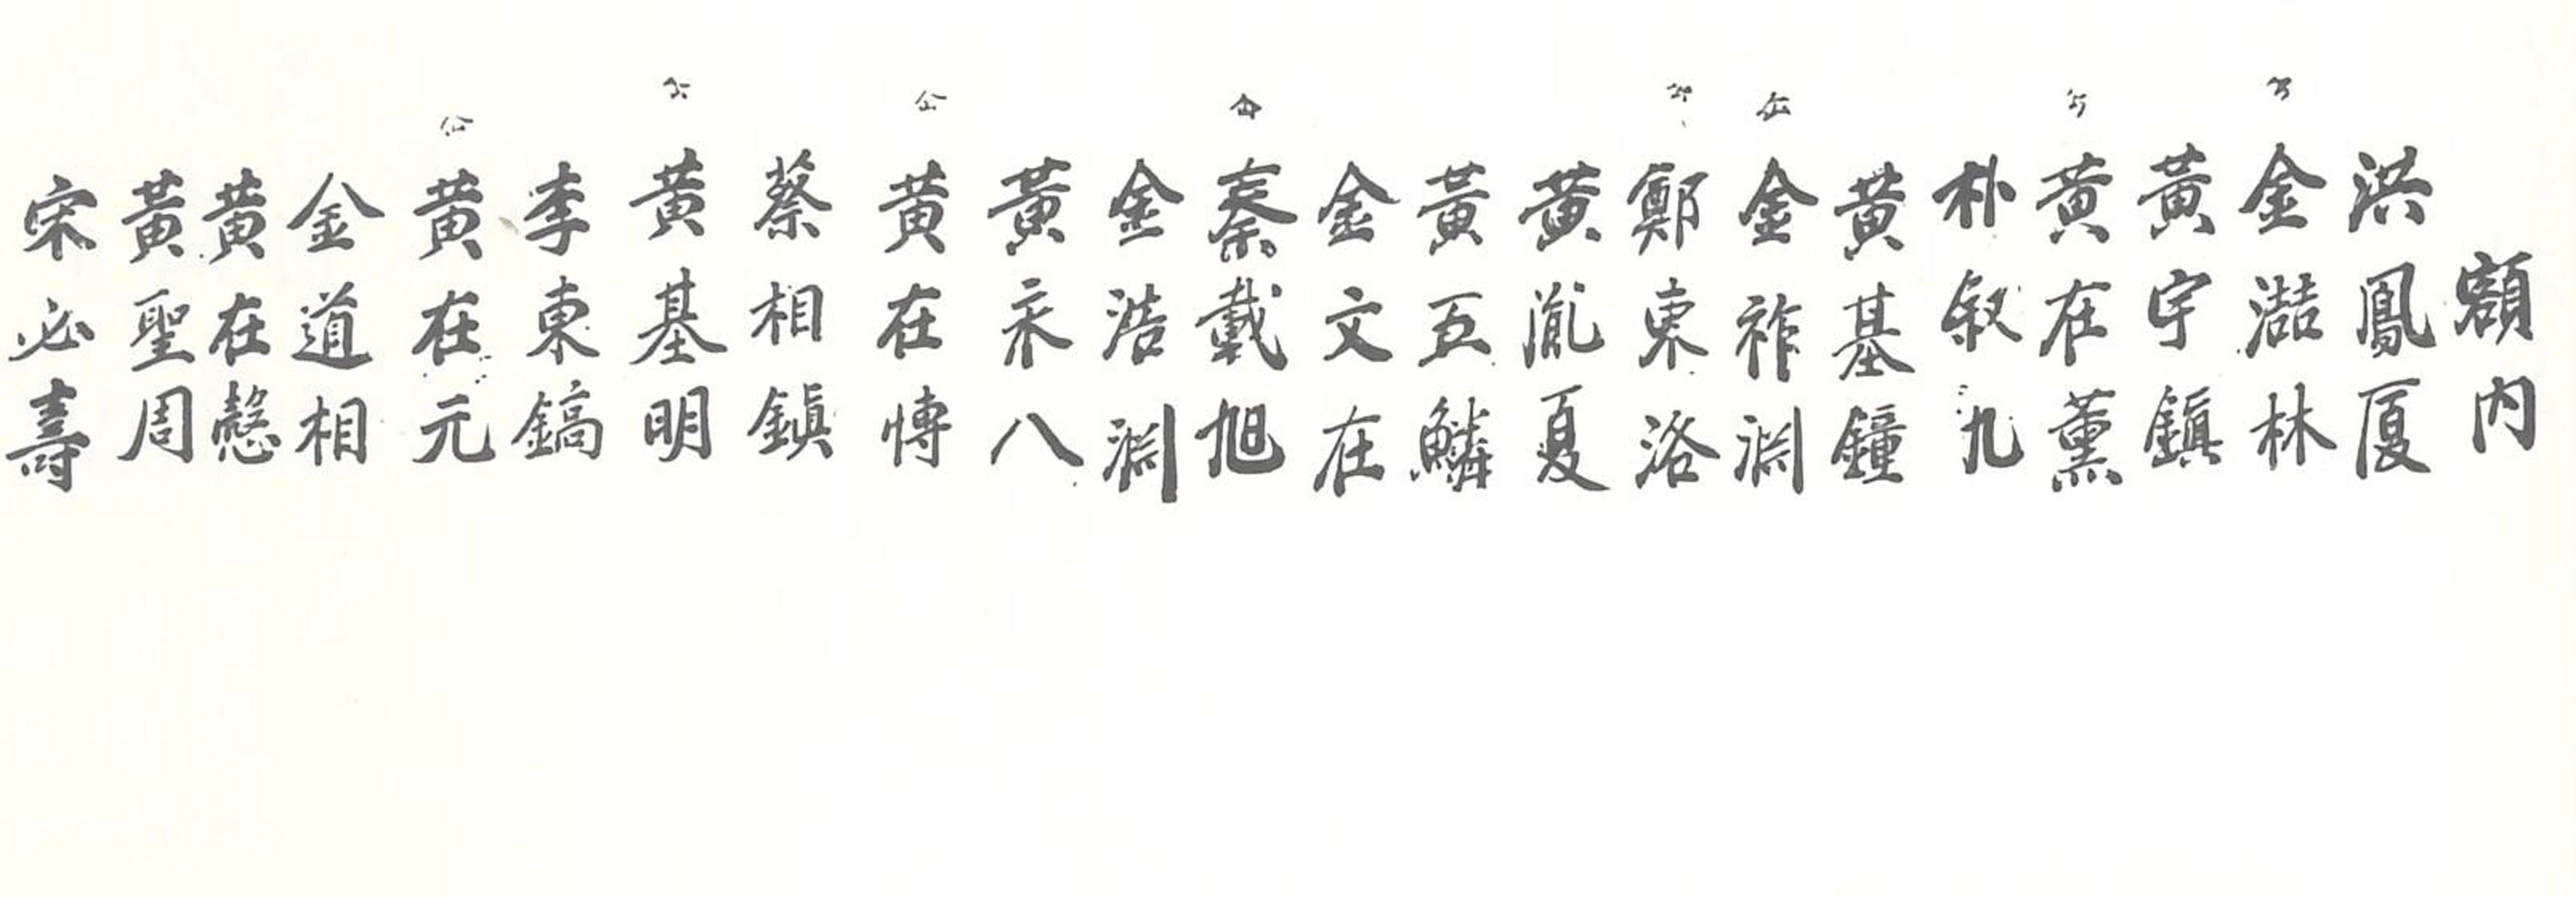 額内
洪鳳厦
金澔林
黃宇鎭
黃在薰
朴叙九
黃基鐘
金祚淵
鄭東洛
黃胤夏
黃五鱗
金文在
秦載旭
金浩淵
黃釆八
黃在博
蔡相鎭
黃基明
李東鎬
黃在元
金道相
黃在慤
黃聖周
宋必壽